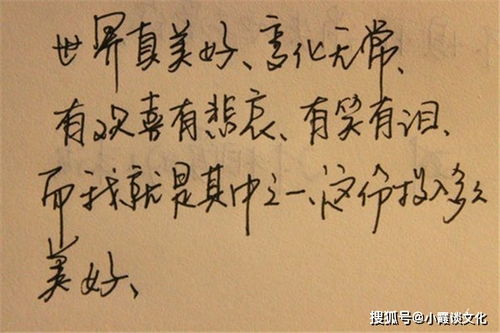 世界真美好、变化无常、
有欢喜有悲哀、有笑有泪、
而我就是其中之一、这份投入多么
美好、
搜狐号@小霞谈文化